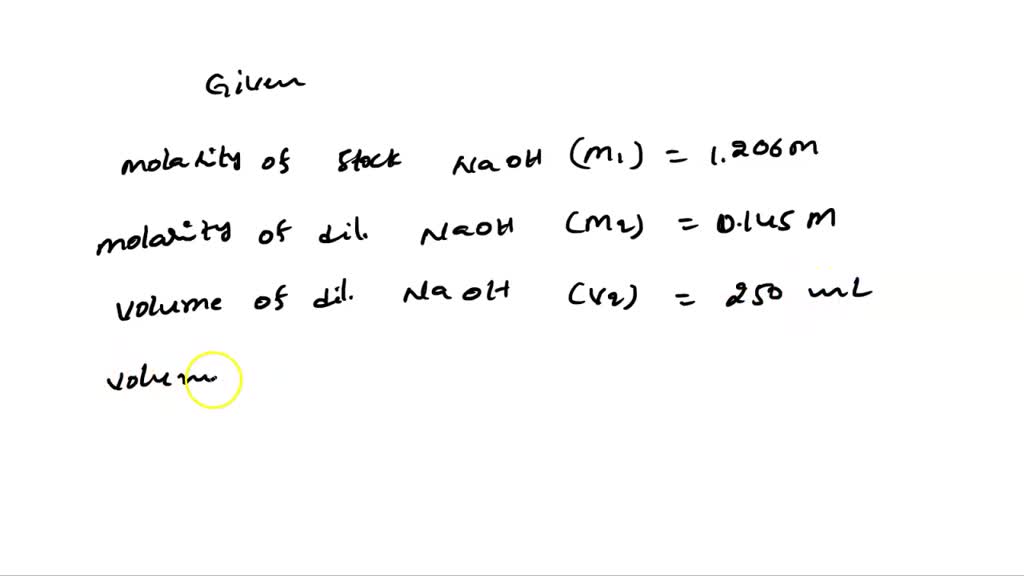 Given
molarity of stock NaOH (M1) = 1.206M
molarity of dil. NaOH (M2) = 0.145 M
volume of dil. NaOH (V2) = 250 mL
volum